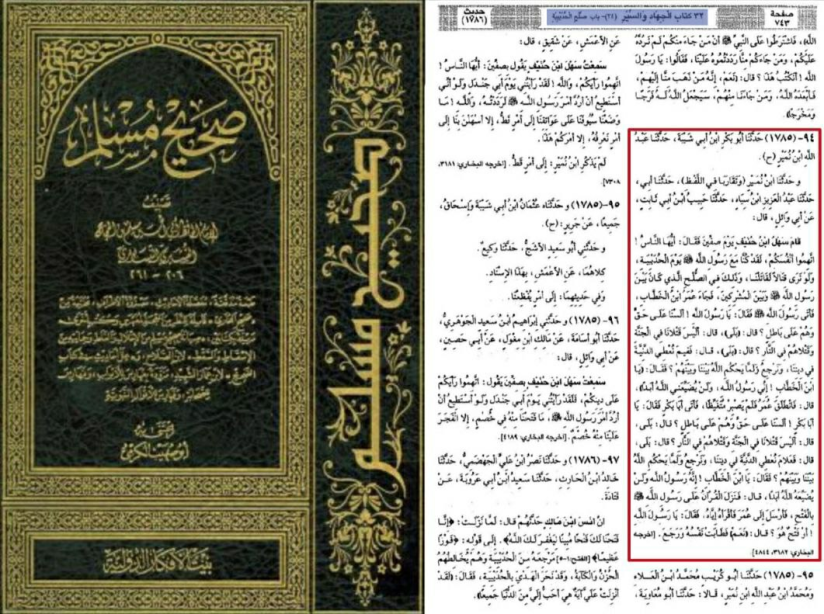 صحيح مسلم
تصنيف
٢٠٦ - ٢٦١
أبو صهيب الكرمي
بيت الأفكار الدولية
صحيح مسلم
صفحة
٧٤٣
٣٢ كتاب الجهاد والسير (٣٤)- باب صلح الحديبية
حديث
(١٧٨٦)
الله)، فاشترطوا على النبي ﷺ أن من جاء منكم لم نرده
عليكم، ومن جاءكم منا رددتموه علينا، فقالوا: يا رسول
الله ! أنكتب هذا ؟ قال: (نعم، إنه من ذهب منا إليهم،
فأبعده الله، ومن جاءنا منهم، سيجعل الله له فرجا
ومخرجا).
٩٤- (١٧٨٥) حدثنا أبو بكر ابن أبي شيبة، حدثنا عبد
الله ابن نمير (ح).
و حدثنا ابن نمير (وتقاربا في اللفظ)، حدثنا أبي،
حدثنا عبد العزيز ابن سياه، حدثنا حبيب ابن أبي ثابت،
عن أبي وائل، قال:
قام سهل ابن حنيف يوم صفين فقال: أيها الناس !
اتهموا أنفسكم، لقد كنا مع رسول الله ﷺ يوم الحديبية،
ولو نرى قتالا لقاتلنا، وذلك في الصلح الذي كان بين
رسول الله ﷺ وبين المشركين، فجاء عمر ابن الخطاب،
فأتى رسول الله ﷺ فقال: يا رسول الله ! ألسنا على حق
وهم على باطل ؟ قال: (بلى)، قال: أليس قتلانا في الجنة
وقتلاهم في النار ؟ قال: (بلى)، قال: ففيم نعطي الدنية
في ديننا، ونرجع ولما يحكم الله بيننا وبينهم ؟ فقال: (يا
ابن الخطاب ! إني رسول الله، ولن يضيعني الله أبدا).
قال: فانطلق عمر فلم يصبر متغيظا، فأتى أبا بكر فقال: يا
أبا بكر ! ألسنا على حق وهم على باطل ؟ قال: بلى،
قال: أليس قتلانا في الجنة وقتلاهم في النار ؟ قال: بلى،
قال: فعلام نعطي الدنية في ديننا، ونرجع ولما يحكم الله
بيننا وبينهم ؟ فقال: يا ابن الخطاب ! إنه رسول الله ولن
يضيعه الله أبدا، قال: فنزل القرآن على رسول الله ﷺ
بالفتح، فأرسل إلى عمر فأقرأه إياه. فقال: يا رسول الله
! أو فتح هو ؟ قال: (نعم) فطابت نفسه ورجع. [اخرجه
البخاري: ٣١٨٢، ٤٨٤٤].
٩٥- (١٧٨٥) حدثنا أبو كريب محمد ابن العلاء،
ومحمد ابن عبد الله ابن نمير، قالا: حدثنا أبو معاوية،
عن الأعمش، عن شقيق، قال:
سمعت سهل ابن حنيف يقول بصفين: أيها الناس !
اتهموا رأيكم، والله ! لقد رأيتني يوم أبي جندل ولو أني
أستطيع أن أرد أمر رسول الله ﷺ لرددته، والله ! ما
وضعنا سيوفنا على عواتقنا إلى أمر قط، إلا أسهلن بنا إلى
أمر نعرفه، إلا أمركم هذا.
لم يذكر ابن نمير: إلى أمر قط. [اخرجه البخاري: ٣١٨١،
٧٣٠٨].
٩٥-(١٧٨٥) و حدثناه عثمان ابن أبي شيبة وإسحاق،
جميعا، عن جرير: (ح).
و حدثني أبو سعيد الأشج، حدثنا وكيع.
كلاهما، عن الأعمش، بهذا الإسناد.
وفي حديثهما: إلى أمر يفظعنا.
٩٦- (١٧٨٥) و حدثني إبراهيم ابن سعيد الجوهري،
حدثنا أبو أسامة، عن مالك ابن مغول، عن أبي حصين،
عن أبي وائل، قال:
سمعت سهل ابن حنيف بصفين يقول: اتهموا رأيكم
على دينكم، فلقد رأيتني يوم أبي جندل ولو أستطيع أن
أرد أمر رسول الله ﷺ، ما فتحنا منه في خصم، إلا انفجر
علينا منه خصم. [اخرجه البخاري: ٤١٨٩].
٩٧- (١٧٨٦) و حدثنا نصر ابن علي الجهضمي، حدثنا
خالد ابن الحارث، حدثنا سعيد ابن أبي عروبة، عن
قتادة.
أن أنس ابن مالك حدثهم قال: لما نزلت: ﴿إنا
فتحنا لك فتحا مبينا ليغفر لك الله﴾. إلى قوله: ﴿فوزا
عظيما﴾ [الفتح: ١-٥] مرجعه من الحديبية وهم يخالطهم
الحزن والكآبة، وقد نحر الهدي بالحديبية، فقال: (لقد
أنزلت علي آية هي أحب إلي من الدنيا جميعا).